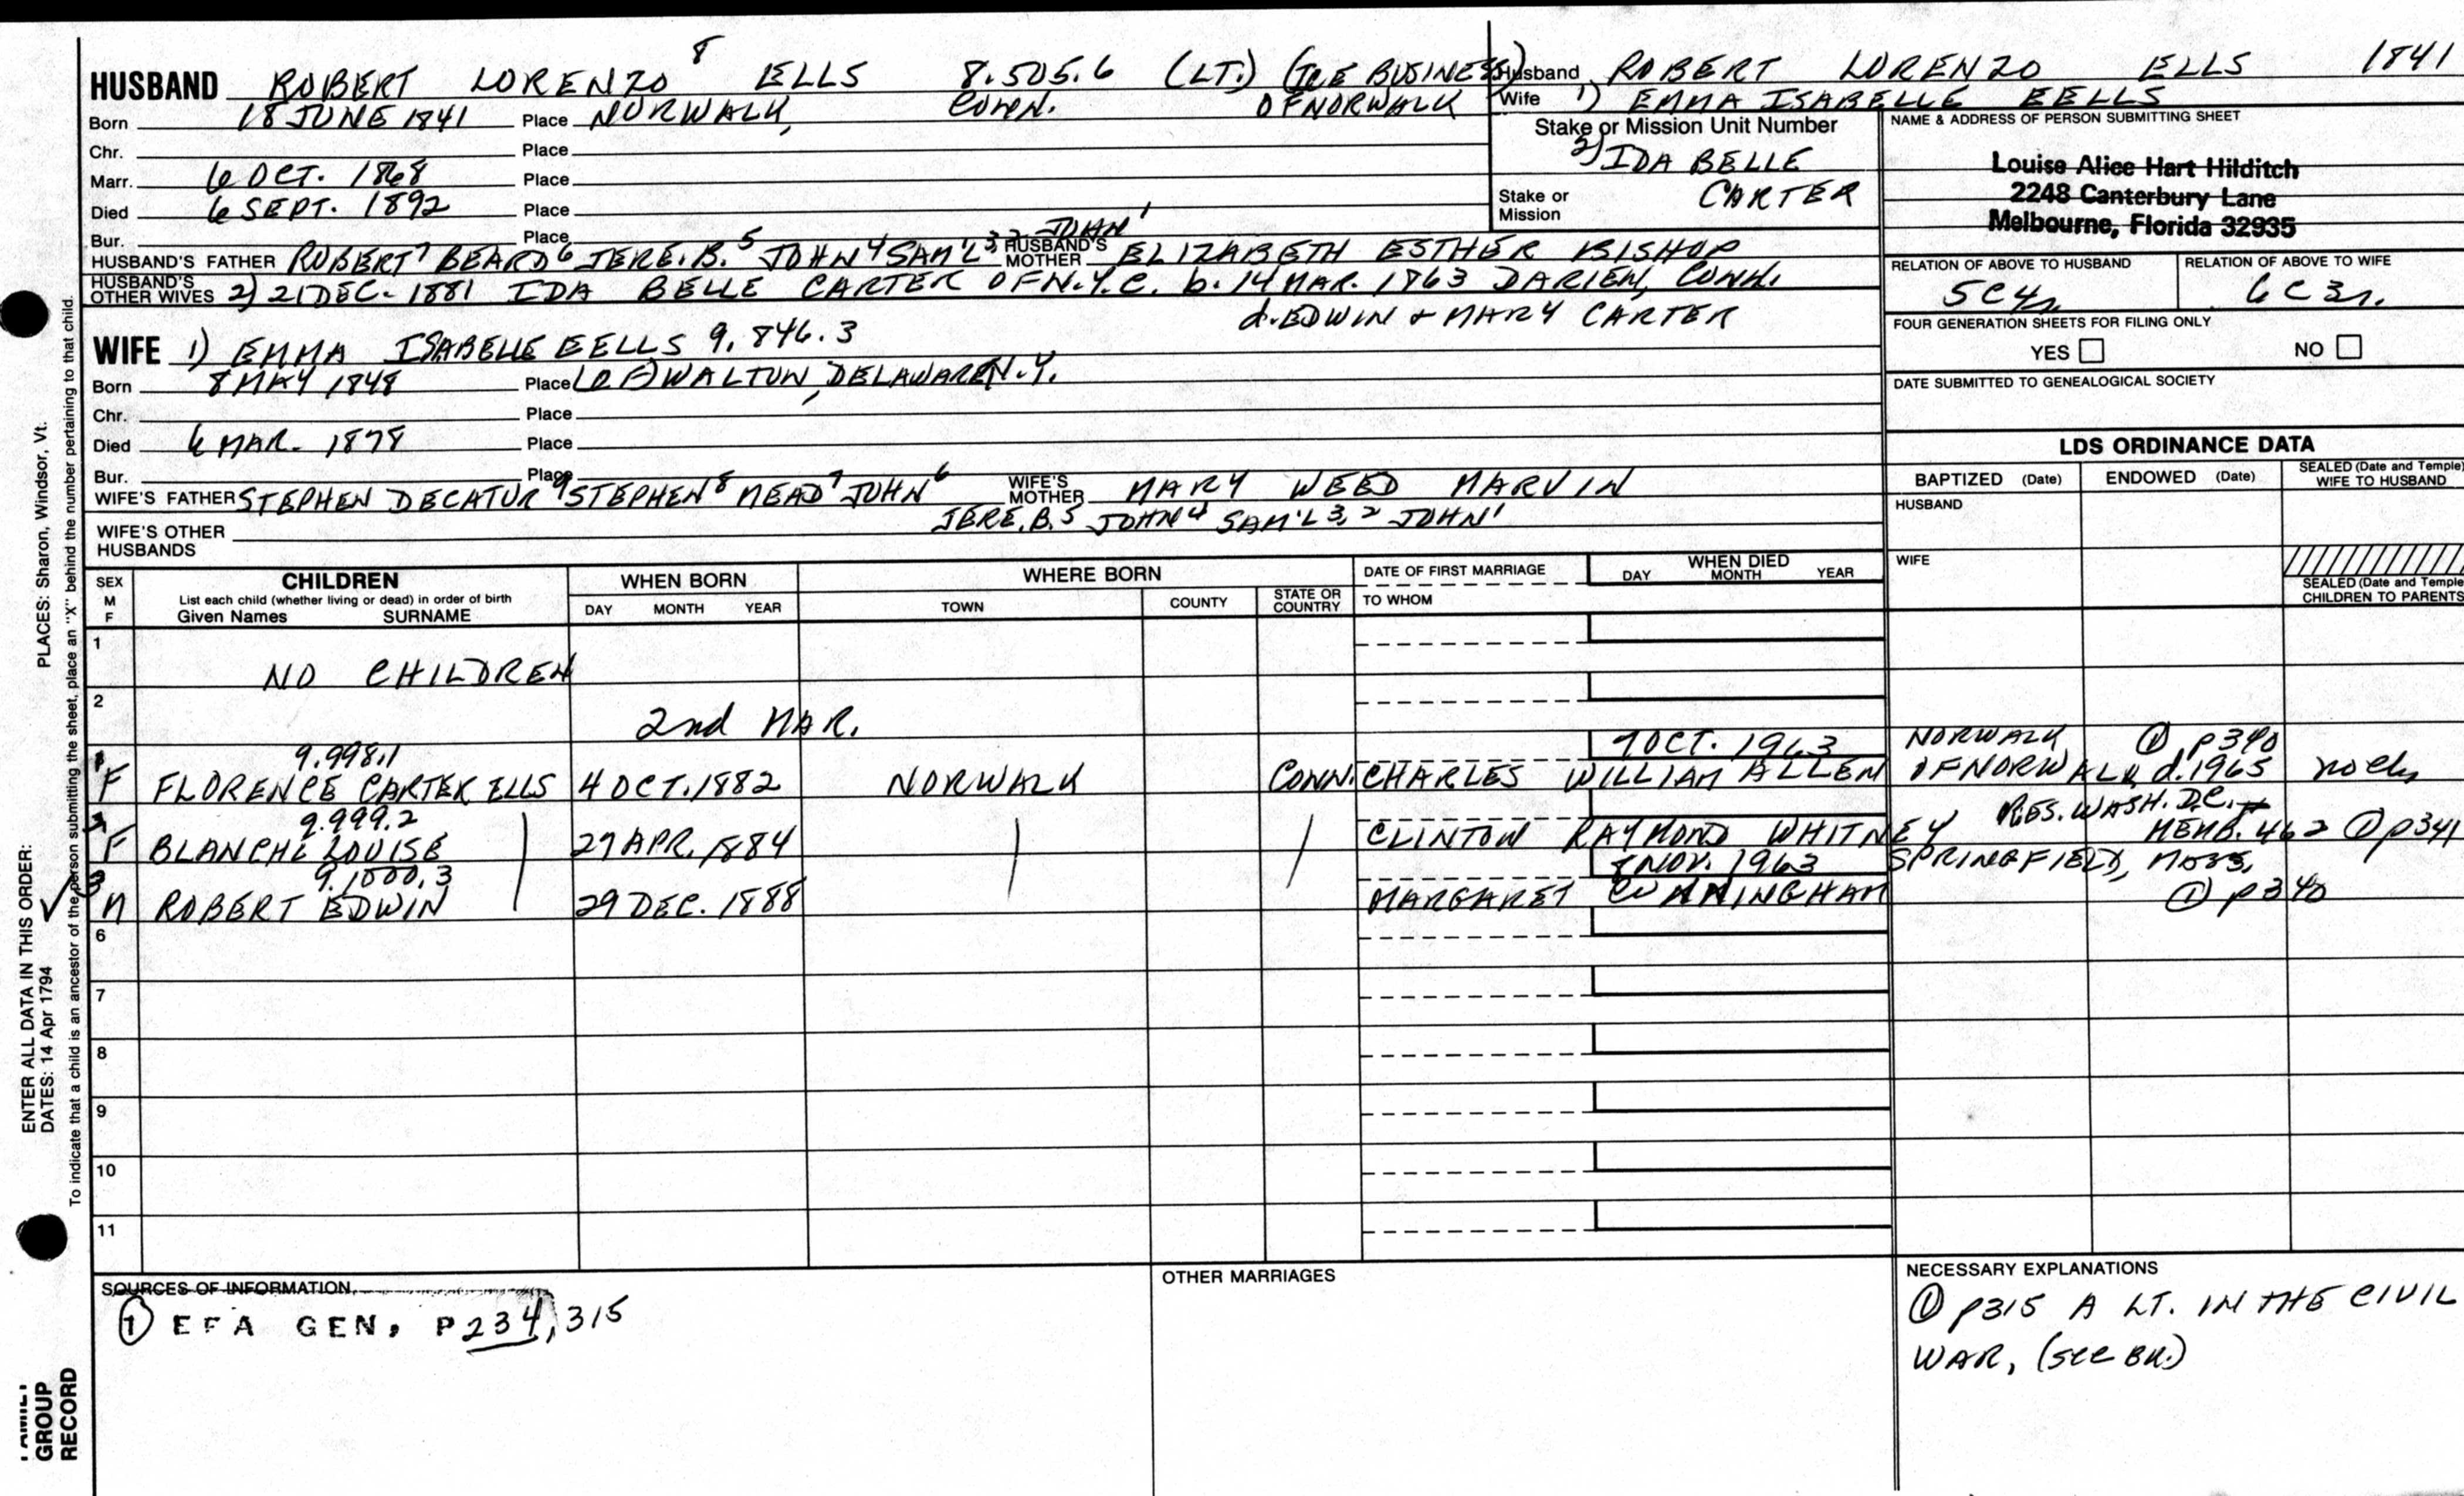 HUSBAND ROBERT LORENZO 8 ELLS 8.505.6 (LT.) (ICE BUSINESS)
Born 18 JUNE 1841 Place NORWALK, CONN. OF NORWALK
Chr. Place
Marr. 6 OCT. 1868 Place
Died 6 SEPT. 1892 Place
Bur. Place
HUSBAND'S FATHER ROBERT 7 BEARD 6 JERE. B. 5 JOHN 4 SAM'L 3, 2 JOHN 1 HUSBAND'S MOTHER ELIZABETH ESTHER BISHOP
HUSBAND'S OTHER WIVES 2) 21 DEC. 1881 IDA BELLE CARTER OF N.Y.C. b. 14 MAR. 1863 DARIEN, CONN.
d. EDWIN + MARY CARTER
WIFE 1) EMMA ISABELLE EELLS 9.846.3
Born 8 MAY 1848 Place (OF) WALTON, DELAWARE N.Y.
Chr. Place
Died 6 MAR. 1878 Place
Bur. Place
WIFE'S FATHER STEPHEN DECATUR 9 STEPHEN 8 MEAD 7 JOHN 6 WIFE'S MOTHER MARY WEED MARVIN
JERE. B. 5 JOHN 4 SAM'L 3, 2 JOHN 1
WIFE'S OTHER HUSBANDS
Husband ROBERT LORENZO ELLS 1841
Wife 1) EMMA ISABELLE EELLS
Stake or Mission Unit Number
2) IDA BELLE
CARTER
Stake or
Mission
NAME & ADDRESS OF PERSON SUBMITTING SHEET
Louise Alice Hart Hilditch
2248 Canterbury Lane
Melbourne, Florida 32935
RELATION OF ABOVE TO HUSBAND RELATION OF ABOVE TO WIFE
5C4r. 6C3r.
FOUR GENERATION SHEETS FOR FILING ONLY
YES NO
DATE SUBMITTED TO GENEALOGICAL SOCIETY
LDS ORDINANCE DATA
BAPTIZED (Date) ENDOWED (Date) SEALED (Date and Temple) WIFE TO HUSBAND
HUSBAND
WIFE
SEALED (Date and Temple) CHILDREN TO PARENTS
SEX M F CHILDREN WHEN BORN WHERE BORN DATE OF FIRST MARRIAGE WHEN DIED
List each child (whether living or dead) in order of birth
Given Names SURNAME DAY MONTH YEAR TOWN COUNTY STATE OR COUNTRY TO WHOM DAY MONTH YEAR
1
NO CHILDREN
2
2nd MAR.
9.998.1 7 OCT. 1963 NORWALK ① p340
1 F FLORENCE CARTER ELLS 4 OCT. 1882 NORWALK CONN. CHARLES WILLIAM ALLEN OF NORWALK d. 1965 no ch
9.999.2 RES. WASH. D.C.
2 F BLANCHE LOUISE 27 APR. 1884 CLINTON RAYMOND WHITNEY MEMB. 462 ① p341
9.1000.3 8 NOV. 1963 SPRINGFIELD, MASS.
3 M ROBERT EDWIN 29 DEC. 1888 MARGARET CUNNINGHAM ① p340
6
7
8
9
10
11
SOURCES OF INFORMATION
① EFA GEN, P234, 315
OTHER MARRIAGES
NECESSARY EXPLANATIONS
① p315 A LT. IN THE CIVIL
WAR, (see BK.)
ENTER ALL DATA IN THIS ORDER:
DATES: 14 Apr 1794 PLACES: Sharon, Windsor, Vt.
To indicate that a child is an ancestor of the person submitting the sheet, place an "X" behind the number pertaining to that child.
FAMILY
GROUP
RECORD